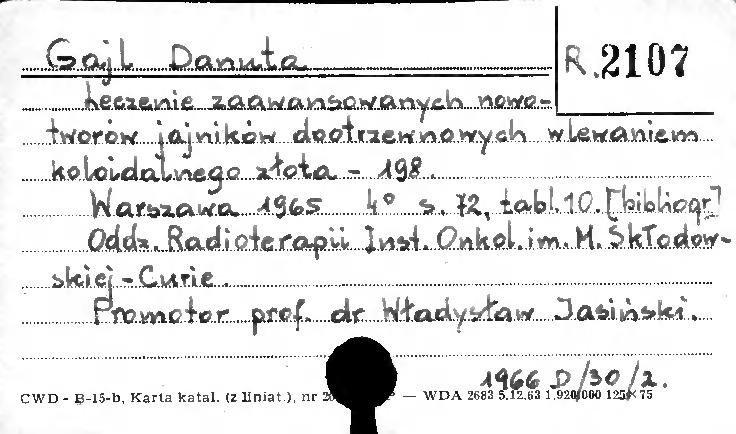 Gajl Danuta
R.2107
Leczenie zaawansowanych nowo-
tworów jajników dootrzewnowych wlewaniem
koloidalnego złota - 198.
Warszawa 1965 4° s. 72, tabl. 10. [bibliogr]
Oddz. Radioterapii Inst. Onkol. im. M. Skłodow-
skiej - Curie.
Promotor prof. dr Władysław Jasiński.
1966 D/30/2.
CWD - B-15-b, Karta katal. (z liniat.), nr — WDA 2683 5.12.63 1.920/000 125×75